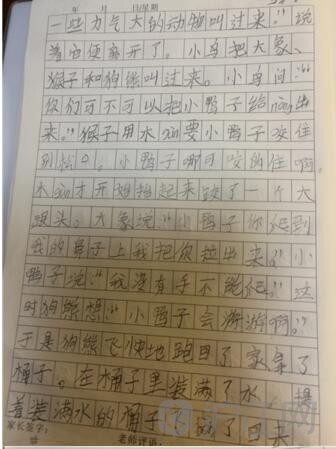 年 月 日/星期
一些力气大的动物叫过来。”说
着它便离开了。小鸟把大象、
猴子和狗熊叫过来。小鸟问:“
你们可不可以把小鸭子给nòng出
来。”猴子用木gùn要小鸭子咬住
别松口。小鸭子哪可咬的住啊。
木gùn才开始抬起来跌了一个大
跟头。大象说:“小鸭子你爬到
我的鼻子上我把你拉出来。”小
鸭子说:“我没有手不能爬。”这
时狗熊想:“小鸭子会游泳啊。”
于是狗熊飞快地跑回了家拿了
桶子。在桶子里装满了水,提
着装满水的桶子 了回来
家长签字:
老师评语: